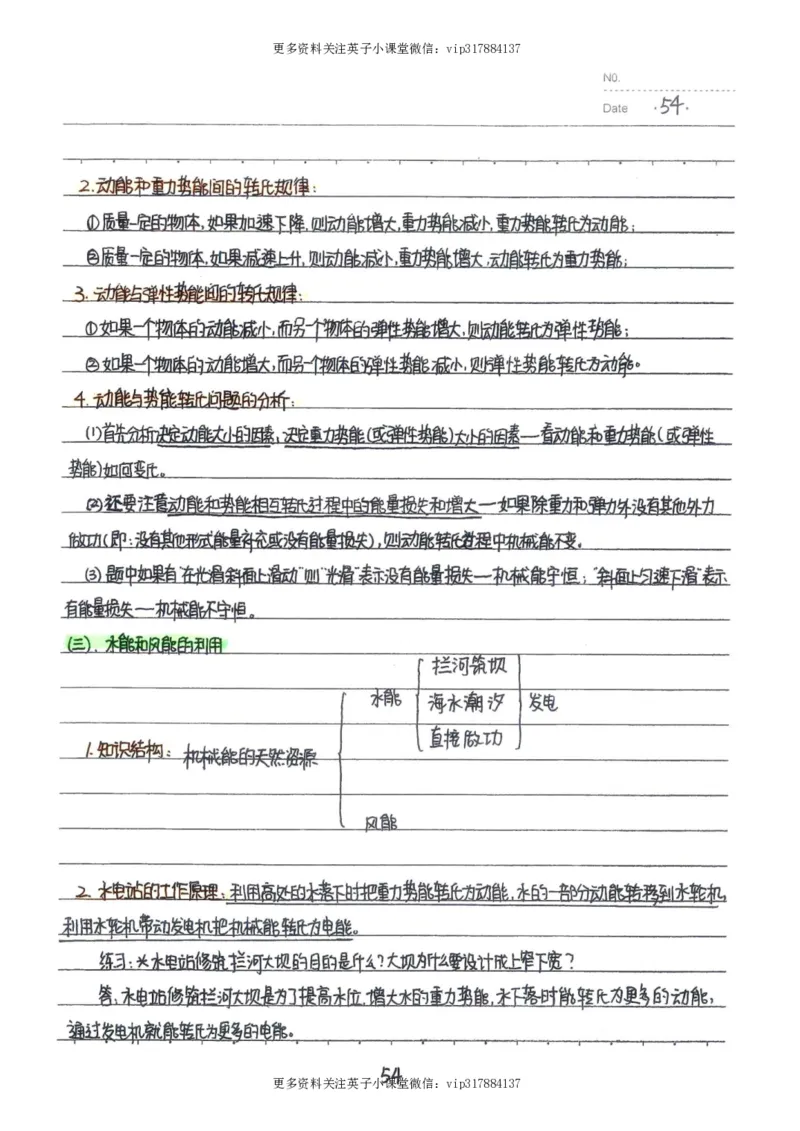 更多资料关注英子小课堂微信：vip317884137
NO.
Date ·54·
2.动能和重力势能间的转化规律：
①质量一定的物体,如果加速下降,则动能增大,重力势能减小,重力势能转化为动能；
②质量一定的物体,如果减速上升,则动能减小,重力势能增大,动能转化为重力势能；
3.动能与弹性势能间的转化规律：
①如果一个物体的动能减小,而另一个物体的弹性势能增大,则动能转化为弹性势能；
②如果一个物体的动能增大,而另一个物体的弹性势能减小,则弹性势能转化为动能。
4.动能与势能转化问题的分析：
(1)首先分析决定动能大小的因素,决定重力势能(或弹性势能)大小的因素—看动能和重力势能(或弹性
势能)如何变化。
(2)还要注意动能和势能相互转化过程中的能量损失和增大—如果除重力和弹力外没有其他外力
做功(即:没有其他形式能量补充或没有能量损失),则动能转化过程中机械能不变。
(3)题中如果有"在光滑斜面上滑动"则"光滑"表示没有能量损失—机械能守恒；"斜面上匀速下滑"表示
有能量损失—机械能不守恒。
(三).水能和风能的利用
拦河筑坝
水能 海水潮汐 发电
直接做功
1.知识结构：机械能的天然资源
风能
2.水电站的工作原理：利用高处的水落下时把重力势能转化为动能,水的一部分动能转移到水轮机,
利用水轮机带动发电机把机械能转化为电能。
练习:*水电站修筑拦河大坝的目的是什么?大坝为什么要设计成上窄下宽？
答:水电站修筑拦河大坝是为了提高水位,增大水的重力势能,水下落时能转化为更多的动能,
通过发电机就能转化为更多的电能。
54
更多资料关注英子小课堂微信：vip317884137